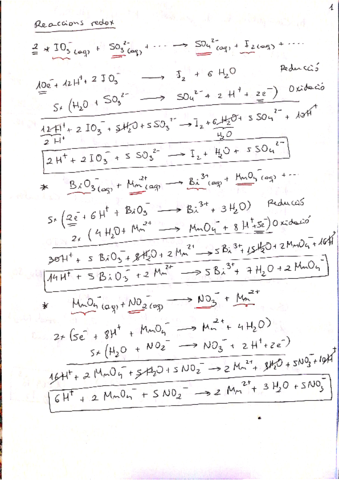 1
Reaccions redox
2 * IO₃⁻(aq) + SO₃²⁻(aq) + ... → SO₄²⁻(aq) + I₂(aq) + ...
10e⁻ + 12H⁺ + 2IO₃⁻ → I₂ + 6H₂O Reducció
5x (H₂O + SO₃²⁻ → SO₄²⁻ + 2H⁺ + 2e⁻) Oxidació
12H⁺ + 2IO₃⁻ + 5H₂O + 5SO₃²⁻ → I₂ + 6H₂O + 5SO₄²⁻ + 10H⁺
2H⁺ H₂O
2H⁺ + 2IO₃⁻ + 5SO₃²⁻ → I₂ + H₂O + 5SO₄²⁻
* BiO₃⁻(aq) + Mn²⁺(aq) → Bi³⁺(aq) + MnO₄⁻(aq) + ...
5x (2e⁻ + 6H⁺ + BiO₃⁻ → Bi³⁺ + 3H₂O) Reducció
2x (4H₂O + Mn²⁺ → MnO₄⁻ + 8H⁺ + 5e⁻) Oxidació
30H⁺ + 5BiO₃⁻ + 8H₂O + 2Mn²⁺ → 5Bi³⁺ + 15H₂O + 2MnO₄⁻ + 16H⁺
14H⁺ + 5BiO₃⁻ + 2Mn²⁺ → 5Bi³⁺ + 7H₂O + 2MnO₄⁻
* MnO₄⁻(aq) + NO₂⁻(aq) → NO₃⁻ + Mn²⁺
2x (5e⁻ + 8H⁺ + MnO₄⁻ → Mn²⁺ + 4H₂O)
5x (H₂O + NO₂⁻ → NO₃⁻ + 2H⁺ + 2e⁻)
16H⁺ + 2MnO₄⁻ + 5H₂O + 5NO₂⁻ → 2Mn²⁺ + 8H₂O + 5NO₃⁻ + 10H⁺
6H⁺ + 2MnO₄⁻ + 5NO₂⁻ → 2Mn²⁺ + 3H₂O + 5NO₃⁻